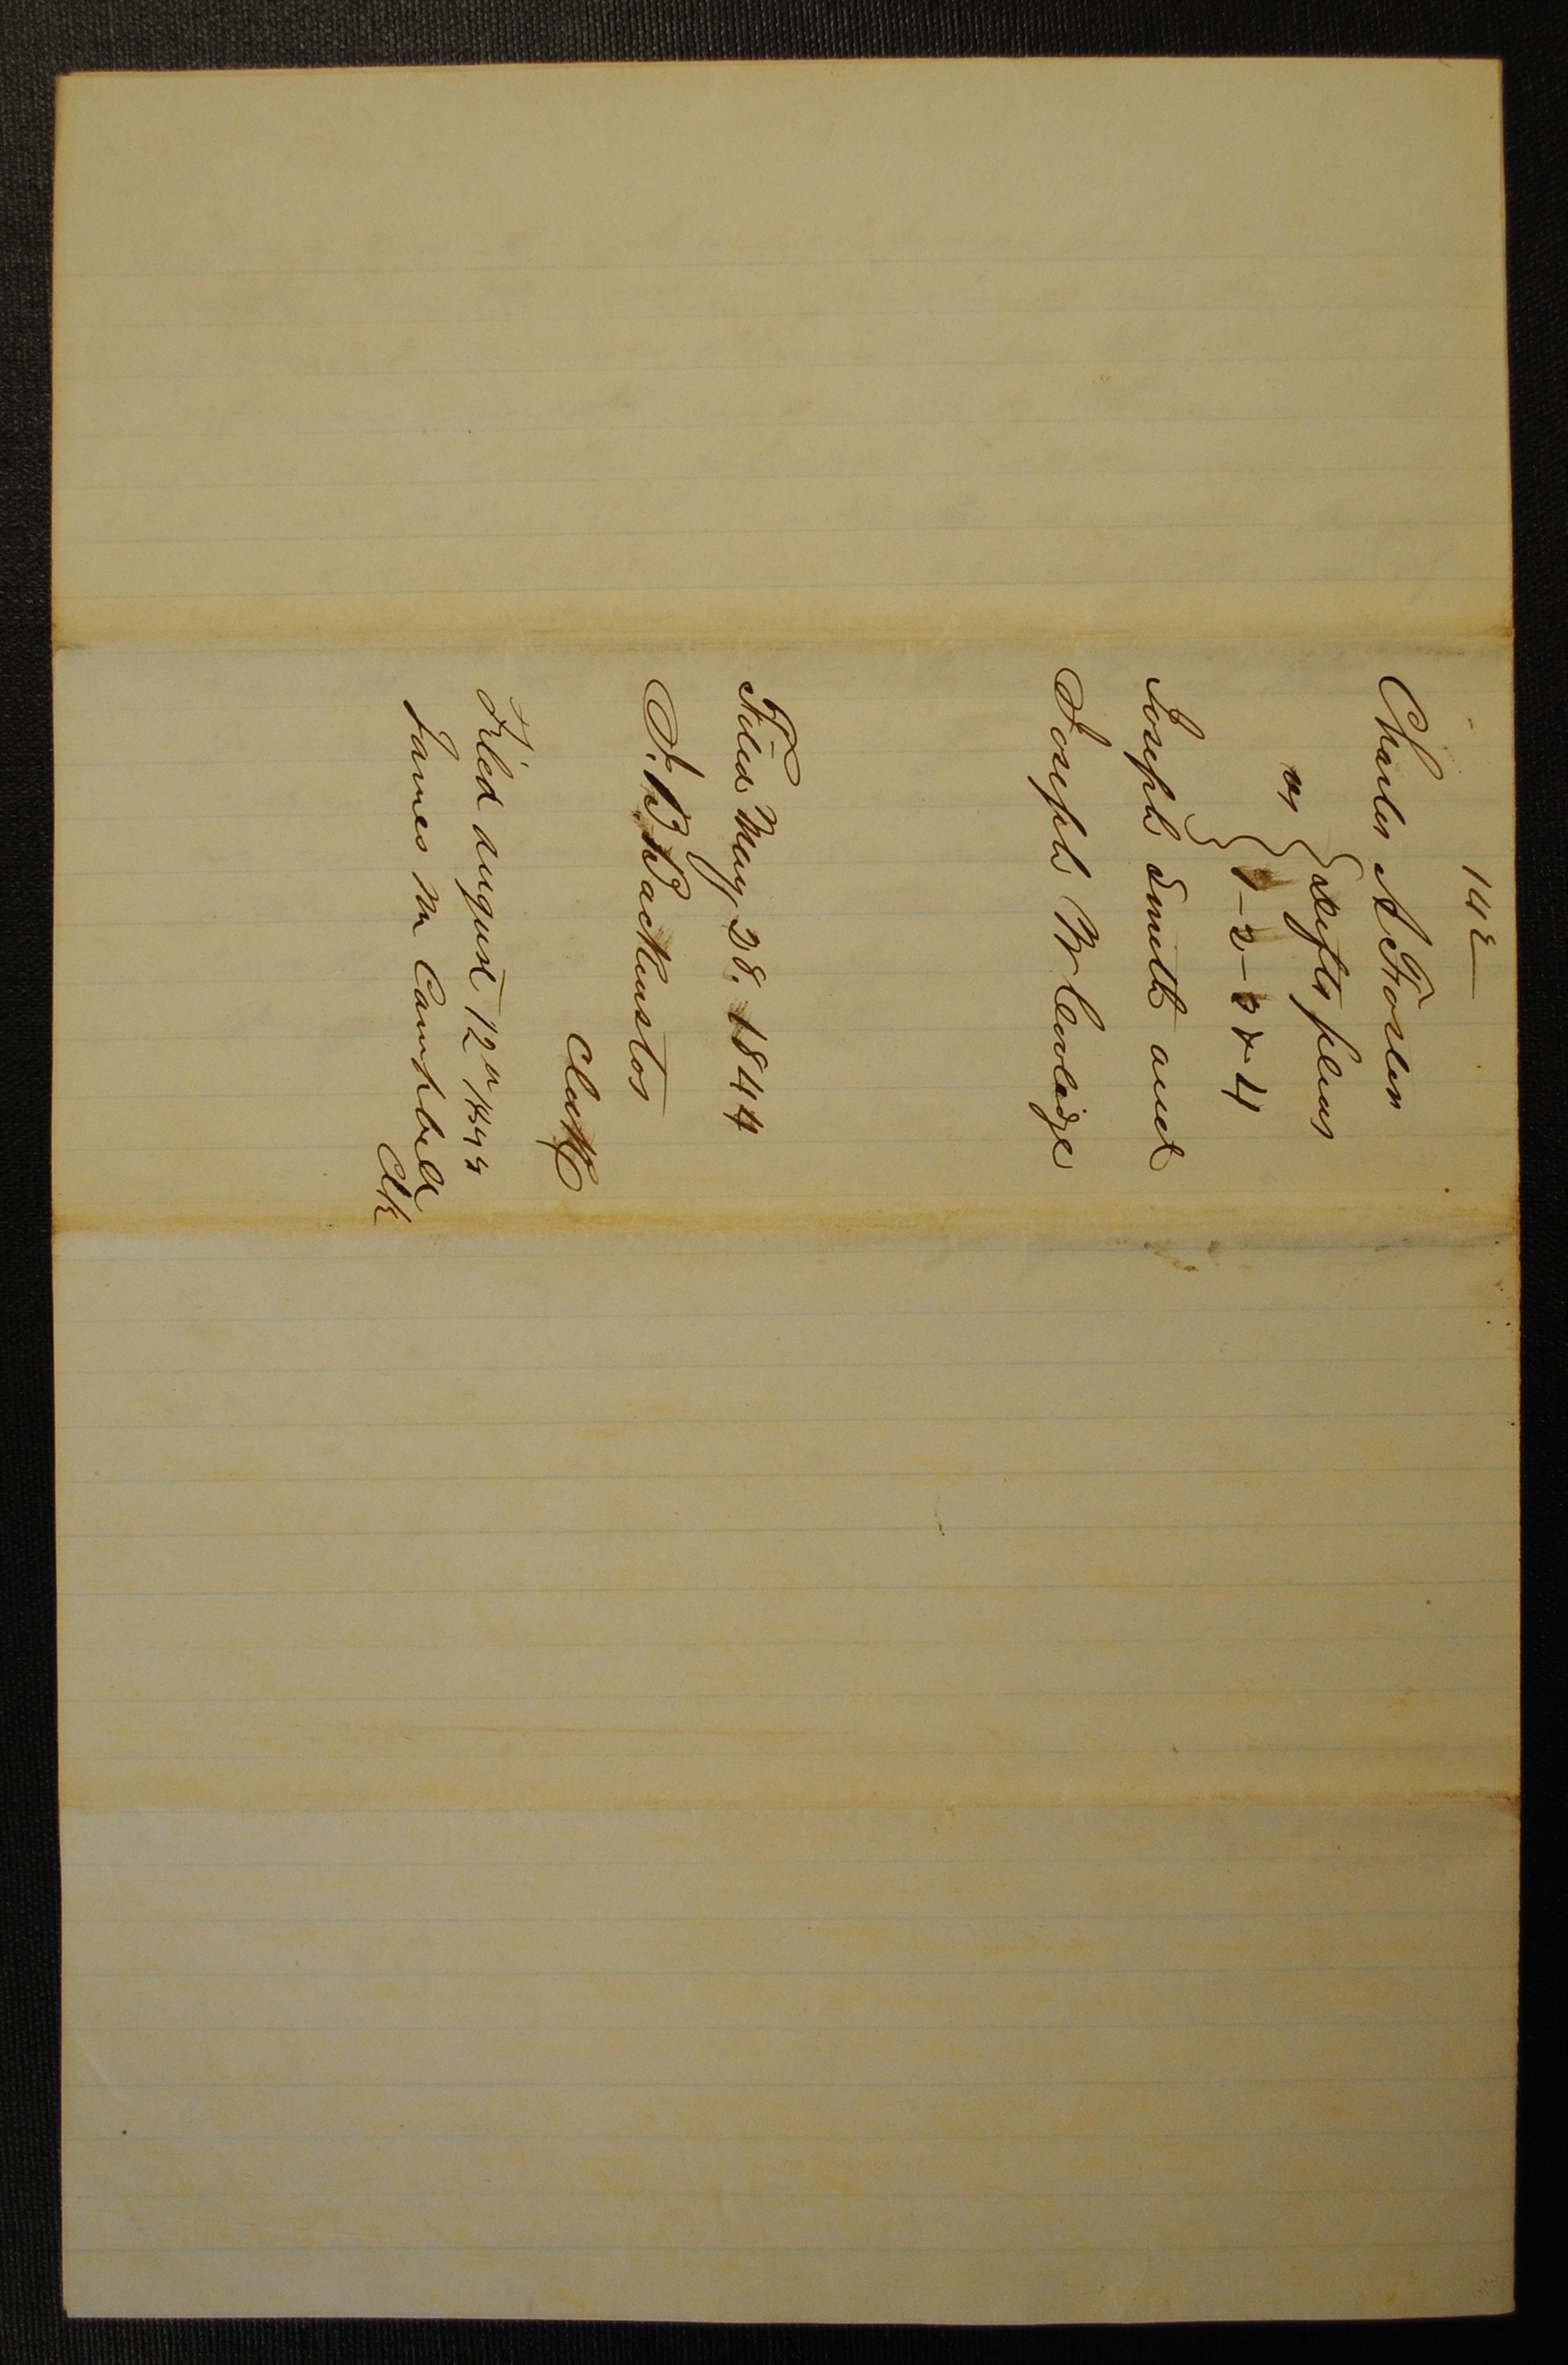 142
Charles A Foster
vs } Defts pleas
1-2-3 & 4
Joseph Smith and
Joseph W Coolidge
Filed May 28. 1844
J. B Backenstos
Clerk
Filed August 12th 1844
James M Campbell
Clk